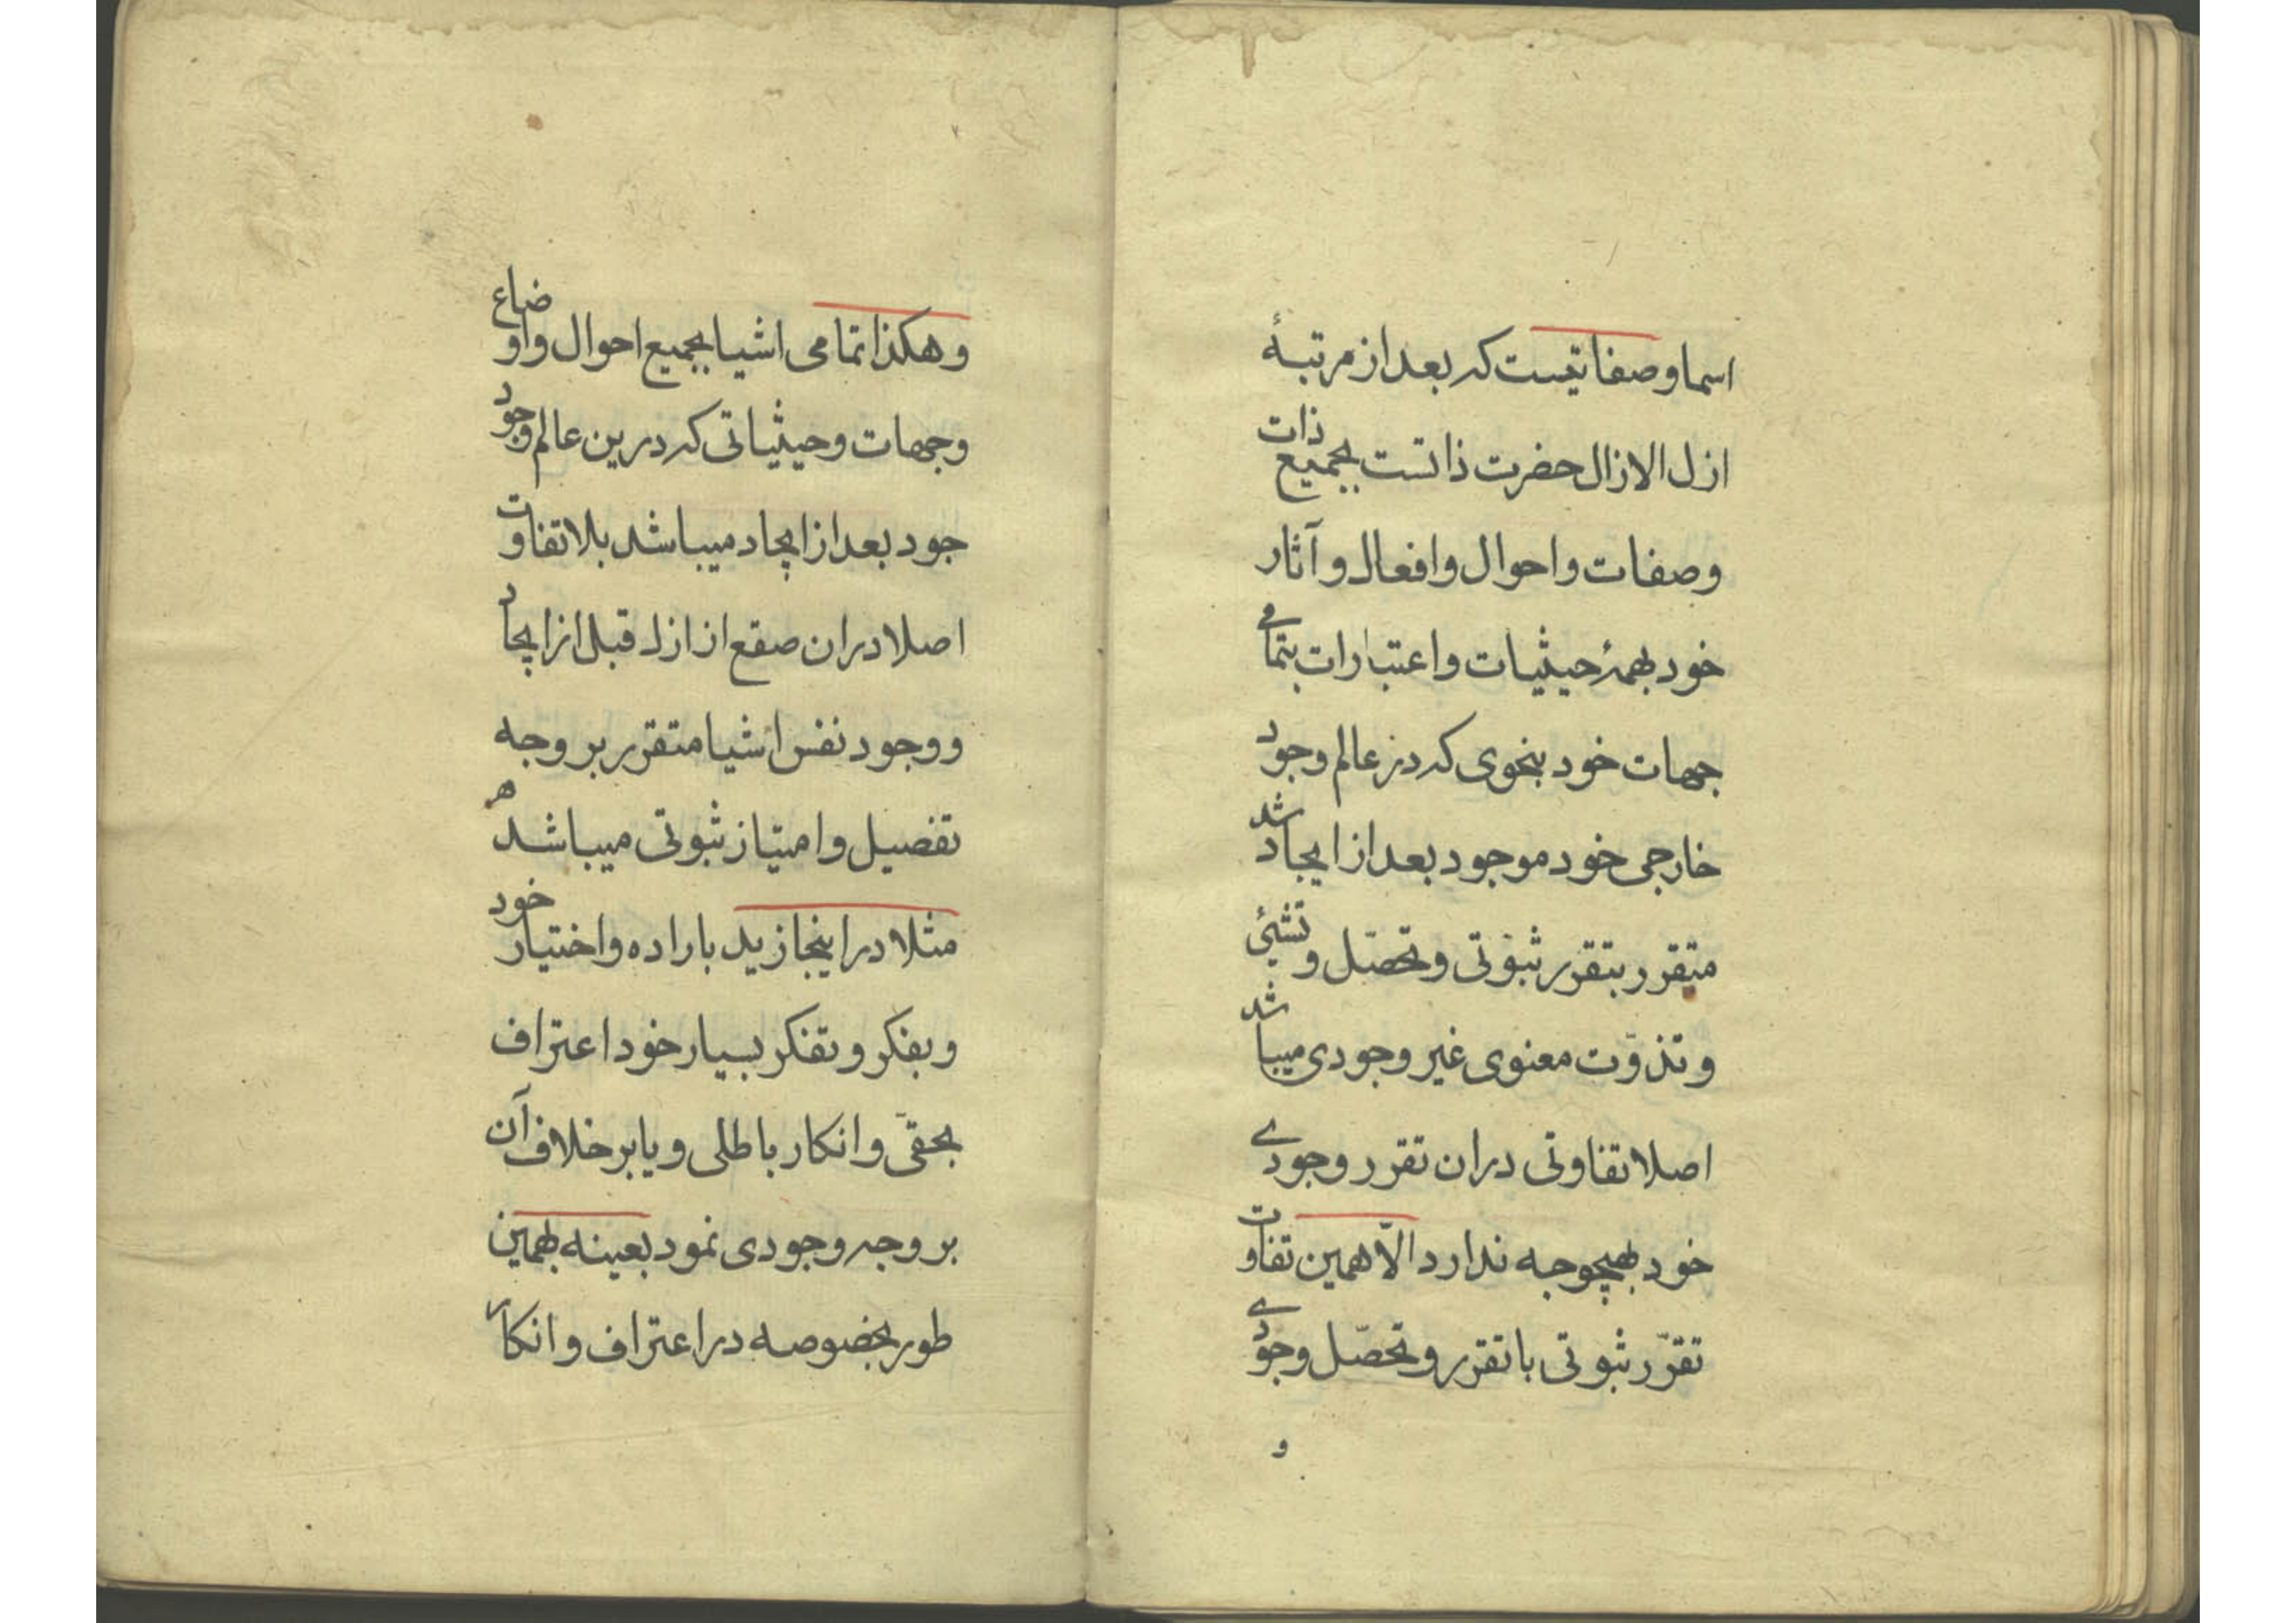 اسما و صفاتیست که بعد از مرتبهٔ
ازل الازال حضرت ذاتست بجمیع ذات
و صفات و احوال و افعال و آثار
خود بهمهٔ حیثیات و اعتبارات بتمامی
جهات خود بنحوی که در عالم وجود
خارجی خود موجود بعد از ایجاد شد
متقرر بتقرر ثبوتی و تحصّل و تشیئ
و تذوّت معنوی غیر وجودی میباشد
اصلا تفاوتی دران تقرر وجودی
خود بهیچوجه ندارد الّا همین تفاوت
تقرّر ثبوتی با تقرر و تحصّل وجودی
و
و هکذا تمامی اشیا بجمیع احوال و اوضاع
و جهات و حیثیاتی که درین عالم وجود
جود بعد از ایجاد میباشد بلا تفاوت
اصلا دران صقع از ازل قبل از ایجاد
و وجود نفس اشیا متقرر بر وجه
تفصیل و امتیاز ثبوتی میباشد ه
مثلا در اینجا زید باراده و اختیار خود
و بفکر و تفکر بسیار خود اعتراف
بحقّی و انکار باطلی و یا بر خلاف آن
بر وجه وجودی نمود بعینه بهمین
طور بخصوصه در اعتراف و انکار